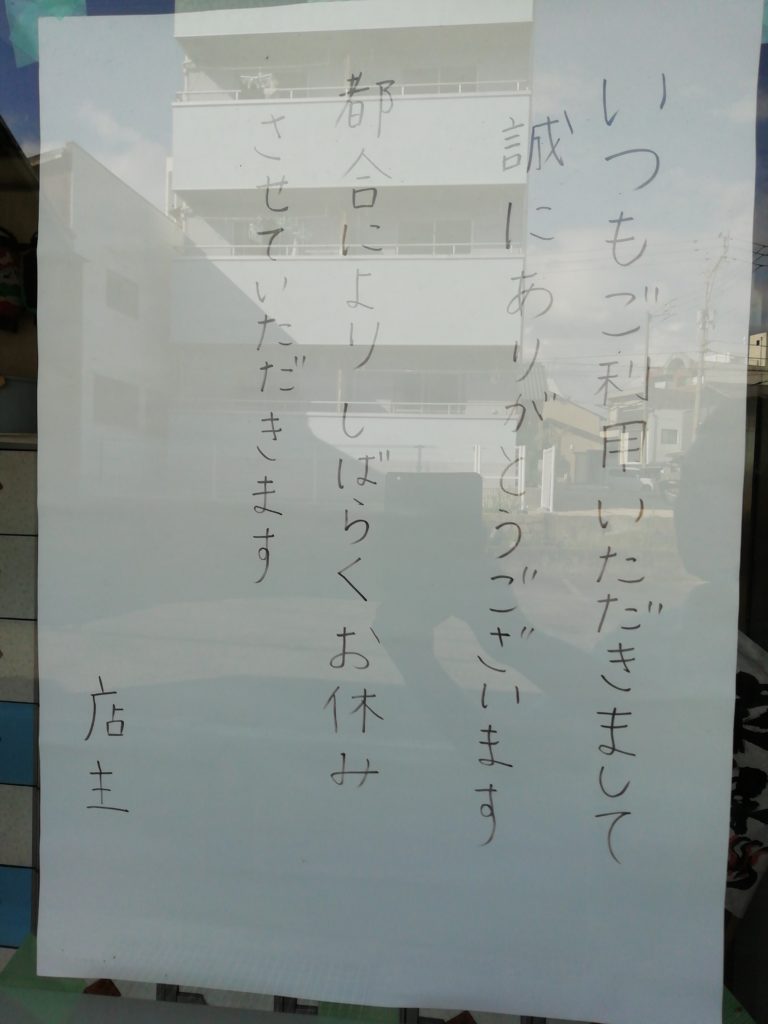 いつもご利用いただきまして
誠にありがとうございます
都合によりしばらくお休み
させていただきます
店主